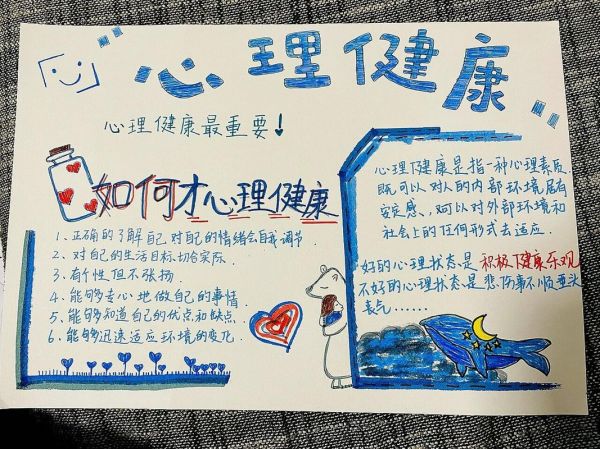 心理健康
心理健康最重要！
如何才心理健康
1、正确的了解自己对自己的情绪会自我调节.
2、对自己的生活目标,切合实际.
3、有个性但不张扬
4、能够专心地做自己的事情.
5、能够知道自己的优点和缺点
6、能够迅速适应环境的变化.
心理健康是指一种心理素质.
既可以对人的内部环境居有
安定感、,可以对外部环境和
社会上的任何形式去适应.
好的心理状态、是积极健康乐观
不好的心理状态、是悲伤事不顺垂头
丧气……